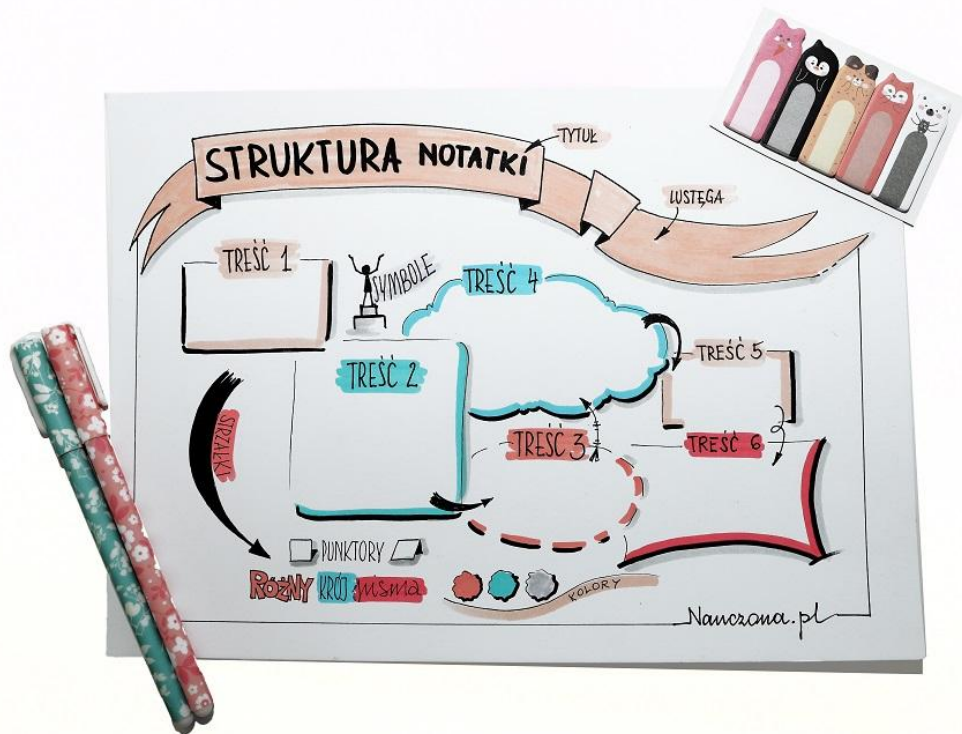 STRUKTURA NOTATKI
TYTUŁ
LUSTĘGA
TREŚĆ 1
SYMBOLE
TREŚĆ 4
TREŚĆ 2
TREŚĆ 5
STRZAŁKI
TREŚĆ 3
TREŚĆ 6
PUNKTORY
RÓŻNY KRÓJ pisma
KOLORY
Nauczona.pl